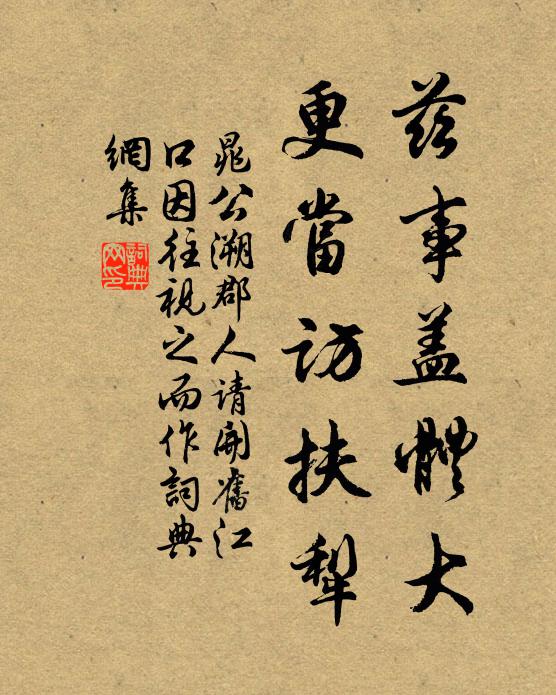 茲事蓋體大
更當訪扶犁
晁公溯郡人請開舊江
口因往視之而作詞典
網集
詞典
网印